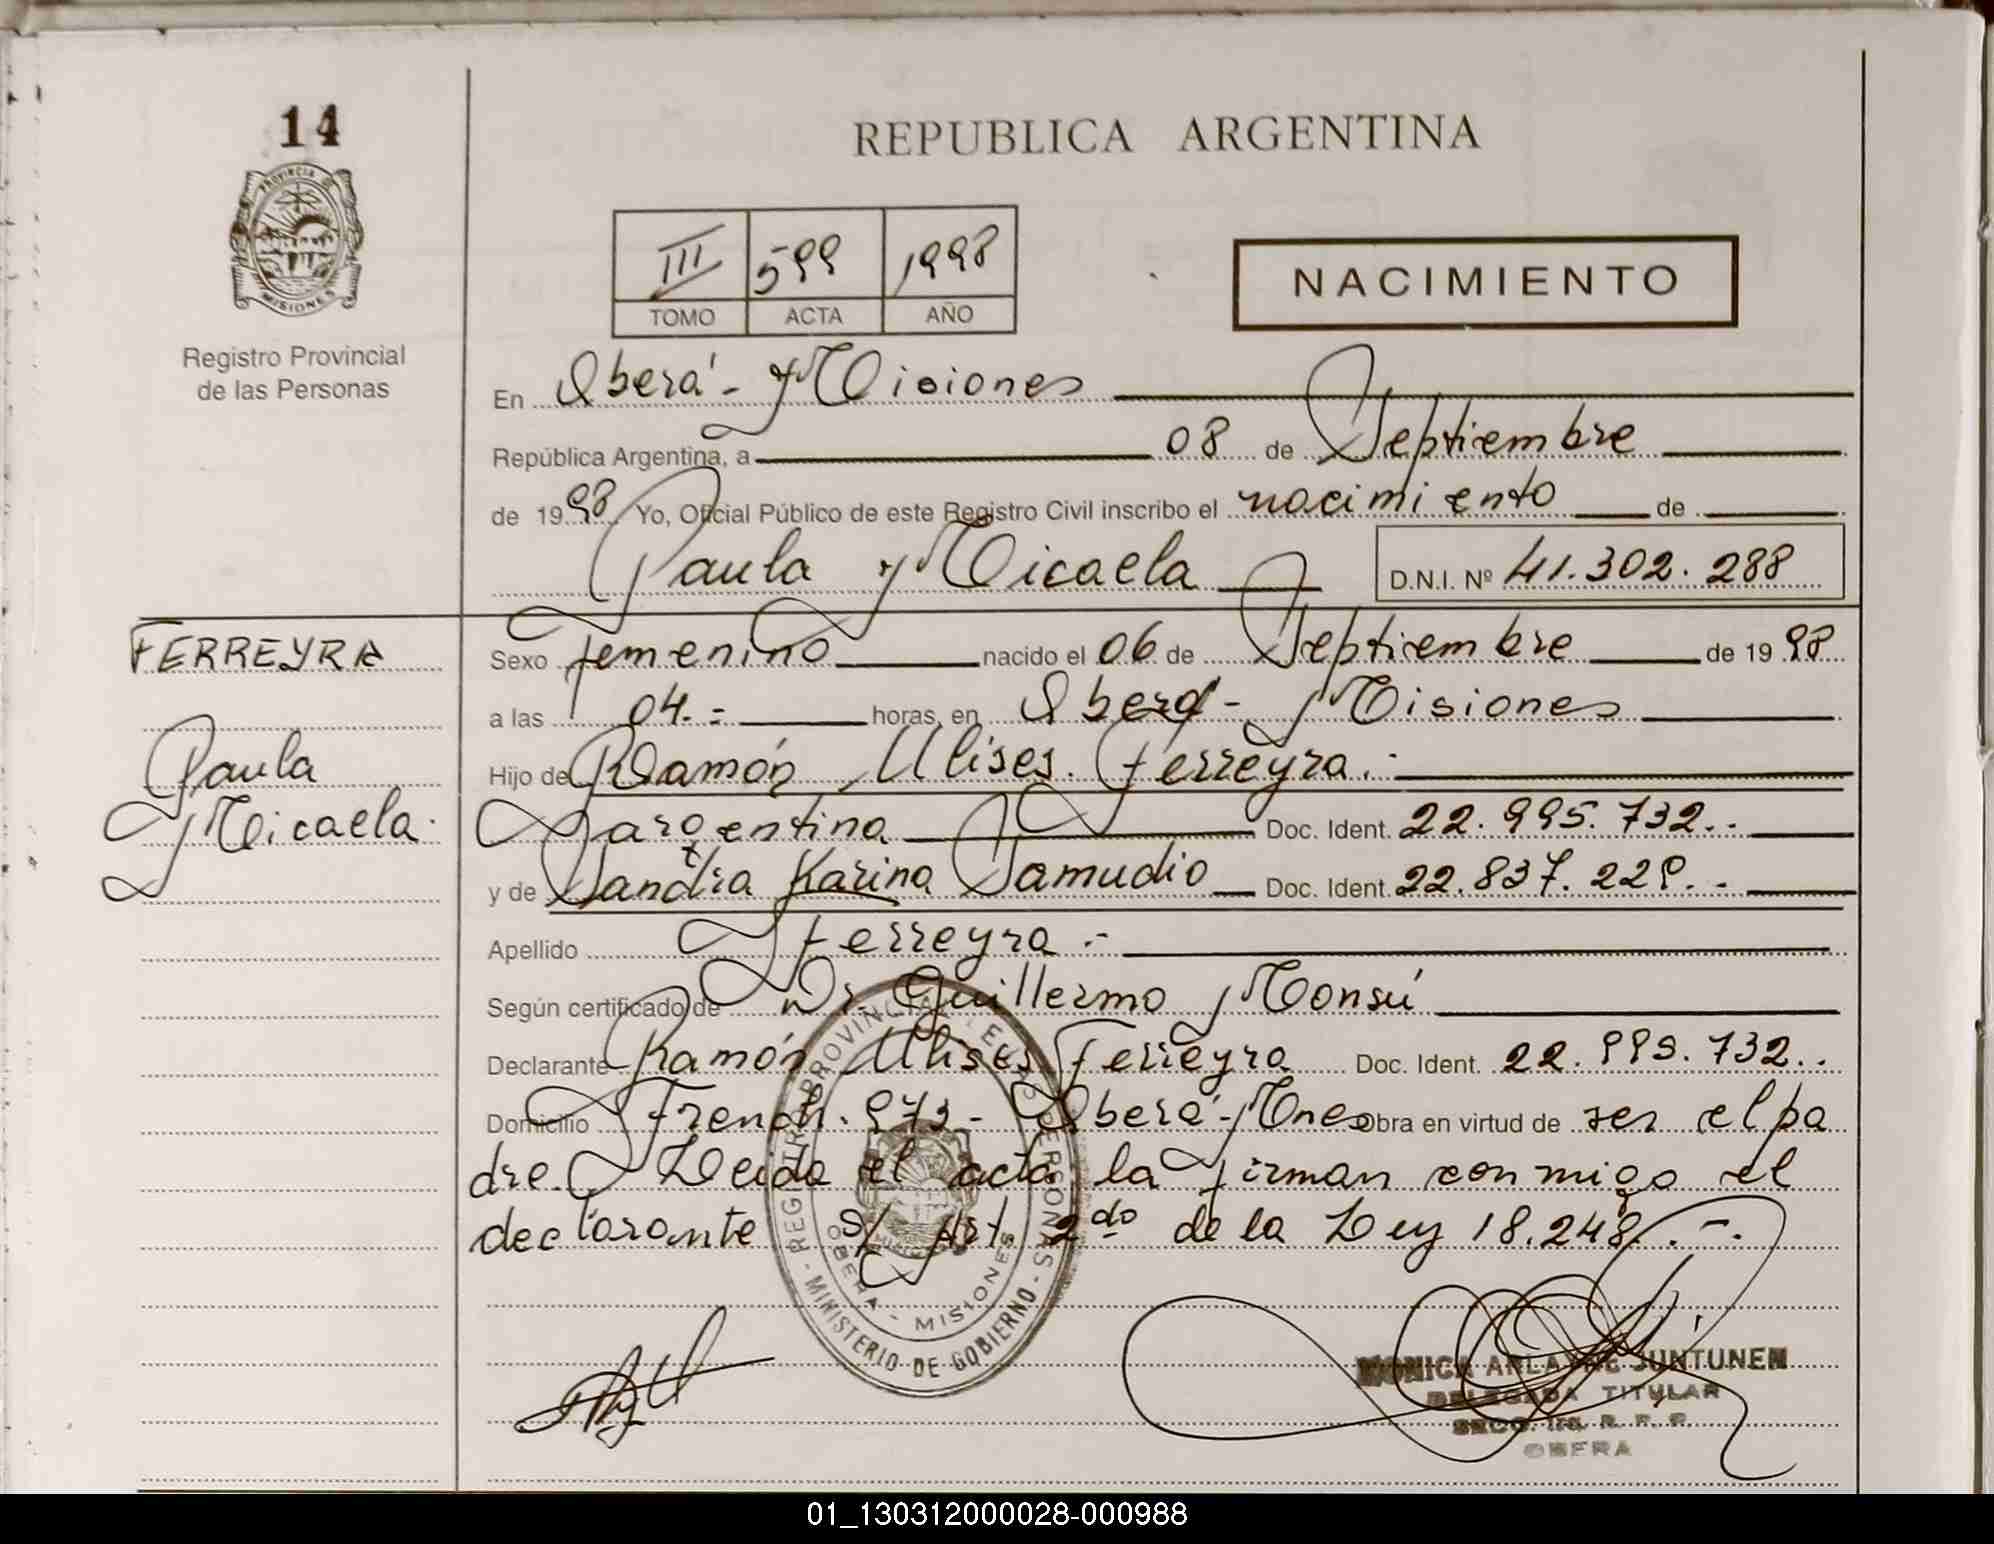 14
PROVINCIA DE
MISIONES
Registro Provincial
de las Personas
REPUBLICA ARGENTINA
III 599 1998
TOMO ACTA AÑO
NACIMIENTO
En Oberá - Misiones
República Argentina, a 08 de Septiembre
de 1998 Yo, Oficial Público de este Registro Civil inscribo el nacimiento de
Paula Micaela D.N.I. Nº 41.302.288
FERREYRA
Paula
Micaela.
Sexo femenino nacido el 06 de Septiembre de 1998
a las 04.- horas, en Oberá - Misiones
Hijo de Ramón Ulises Ferreyra.-
argentina Doc. Ident. 22.995.732.-
y de Sandra Karina Samudio Doc. Ident. 22.837.229.-
Apellido Ferreyra.-
Según certificado de Dr Guillermo Monsú
Declarante Ramón Ulises Ferreyra Doc. Ident. 22.995.732..
Domicilio French. 973- Oberá-Mnes Obra en virtud de ser el pa
dre. Leida el acta la firman conmigo el
declarante S/ Art. 2do de la Ley 18.248.-.
REGISTRO PROVINCIAL DE LAS PERSONAS - MINISTERIO DE GOBIERNO -
OBERA - MISIONES
MONICA ARLAYNE JUNTUNEN
DELEGADA TITULAR
SECC. R. P. P.
OBERA
01_130312000028-000988